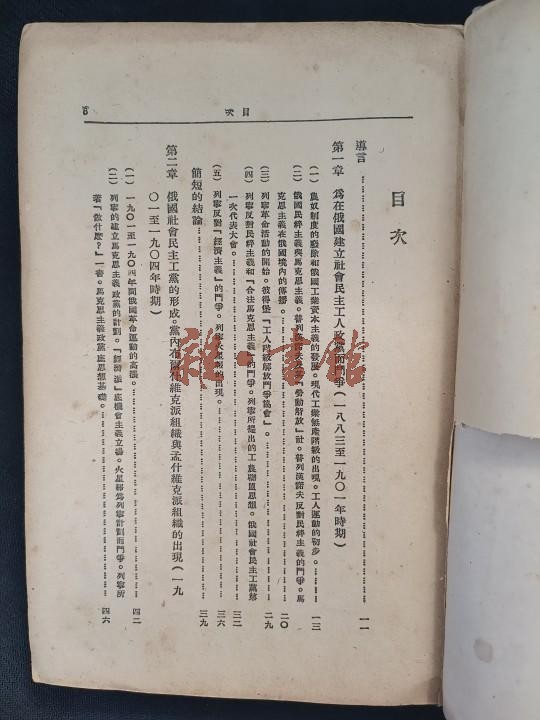 目次
目次
導言……………………一一
第一章 爲在俄國建立社會民主工人政黨而鬥爭（一八八三至一九〇一年時期）
（一）農奴制度的廢除和俄國工業資本主義的發展。現代工業無產階級的出現。工人運動的初步。……一三
（二）俄國民粹主義與馬克思主義。普列漢諾夫及其「勞動解放」社。普列漢諾夫反對民粹主義的鬥爭。馬
克思主義在俄國境內的傳播。……………………二〇
（三）列寧革命活動的開始。彼得堡「工人階級解放鬥爭協會」。……………………二九
（四）列寧反對民粹主義和「合法馬克思主義」的鬥爭。列寧所提出的工農聯盟思想。俄國社會民主工黨第
一次代表大會。……………………三二
（五）列寧反對「經濟主義」的鬥爭。列寧火星報的出現。……………………三六
簡短的結論……………………三九
第二章 俄國社會民主工黨的形成。黨內布爾什維克派組織與孟什維克派組織的出現（一九
〇一至一九〇四年時期）
（一）一九〇一至一九〇四年間俄國革命運動的高漲。……………………四二
（二）列寧的建立馬克思主義政黨的計劃。「經濟派」底機會主義立場。火星報爲列寧計劃而鬥爭。列寧所
著「做什麼？」一書。馬克思主義政黨底思想基礎。……………………四六
新一書館